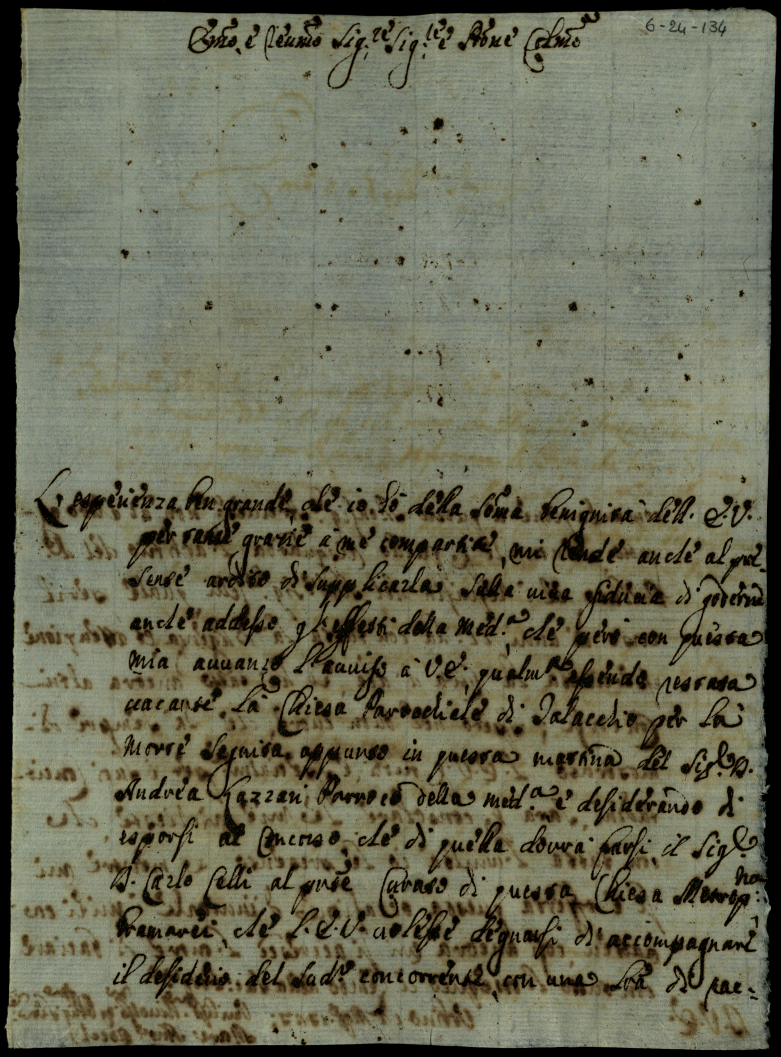 6-24-134
Emo, e Reumo Sig.re Sig.re e Pñe Colmo
L'esperienza ben grande, che io hò della soma benignità dell' E.V.
per tante grazie à me compartite, mi rende anche al pre-
sente ardito di supplicarla sulla viva fiducia di goderne
anche addesso gl'effetti della med.a, che però con questa
mia avvanzo l'avviso à V.E. qualm.e essendo restata
vacante la Chiesa Parochiale di Talacchio per la
morte seguita appunto in questa matina del Sig.r D.
Andrea Lazzari Parroco della med.a e desiderando di
esporsi al Concorso, che di quella dovrà farsi il Sig.r
D. Carlo Celli al pnte Curato di questa Chiesa Metrop.na
bramarei, che l'E.V. volesse degnarsi di accompagnare
il desiderio del sud.o concorrente con una lra di rac-